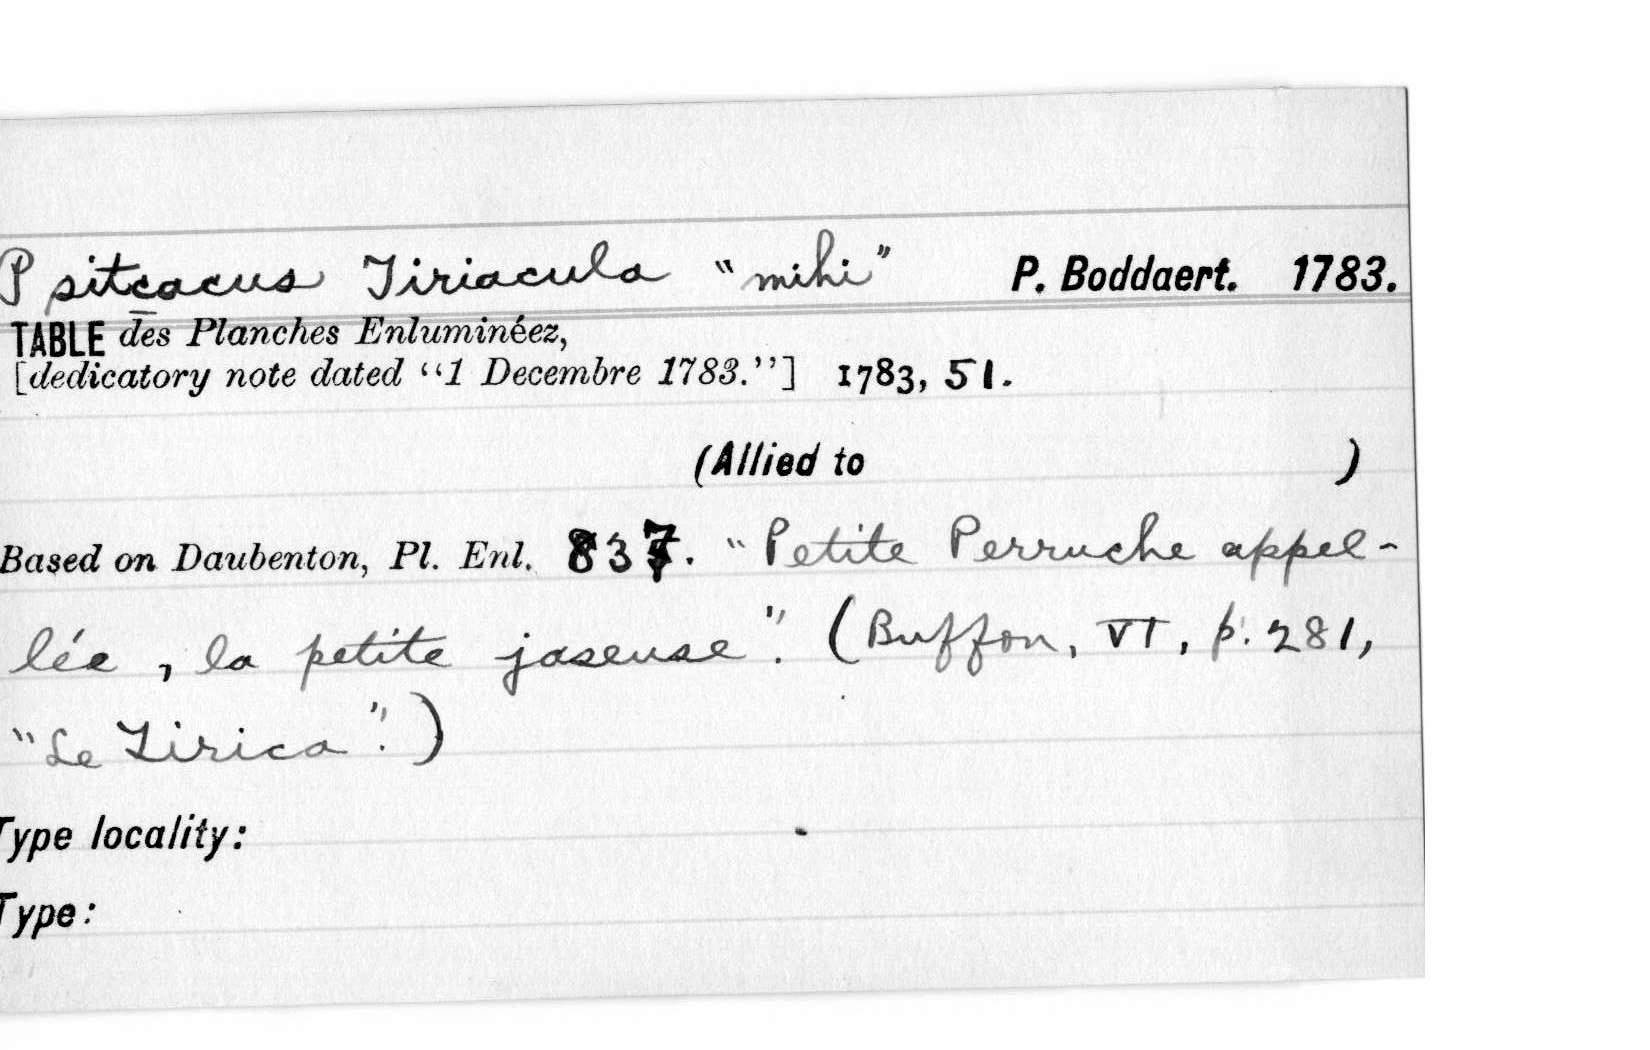 Psitcacus Tiriacula "mihi" P. Boddaert. 1783.
TABLE des Planches Enluminéez,
[dedicatory note dated "1 Decembre 1783."] 1783, 51.
(Allied to )
Based on Daubenton, Pl. Enl. 837. "Petite Perruche appel-
lée, la petite jaseuse". (Buffon, VI, p. 281,
"Le Tirica".)
Type locality:
Type: